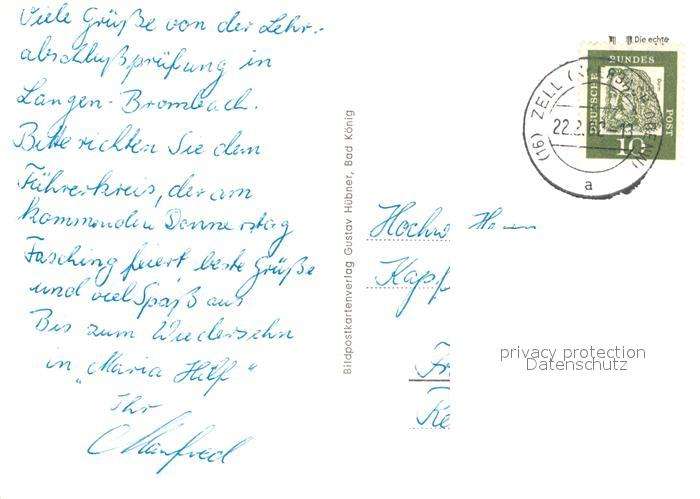 Viele Grüße von der Lehr-
abschlußprüfung in
Langen-Brombach.
Bitte richten Sie dem
Führerkreis, der am
kommenden Donnerstag
Fasching feiert beste Grüße
und viel Spaß aus
Bis zum Wiedersehn
in „Maria Hilf“
Ihr
Manfred
Bildpostkartenverlag Gustav Hübner, Bad König
Die echte
DEUTSCHE
BUNDES
POST
10
(16) ZELL
22.2.
a
Hochw
Kap
privacy protection
Datenschutz